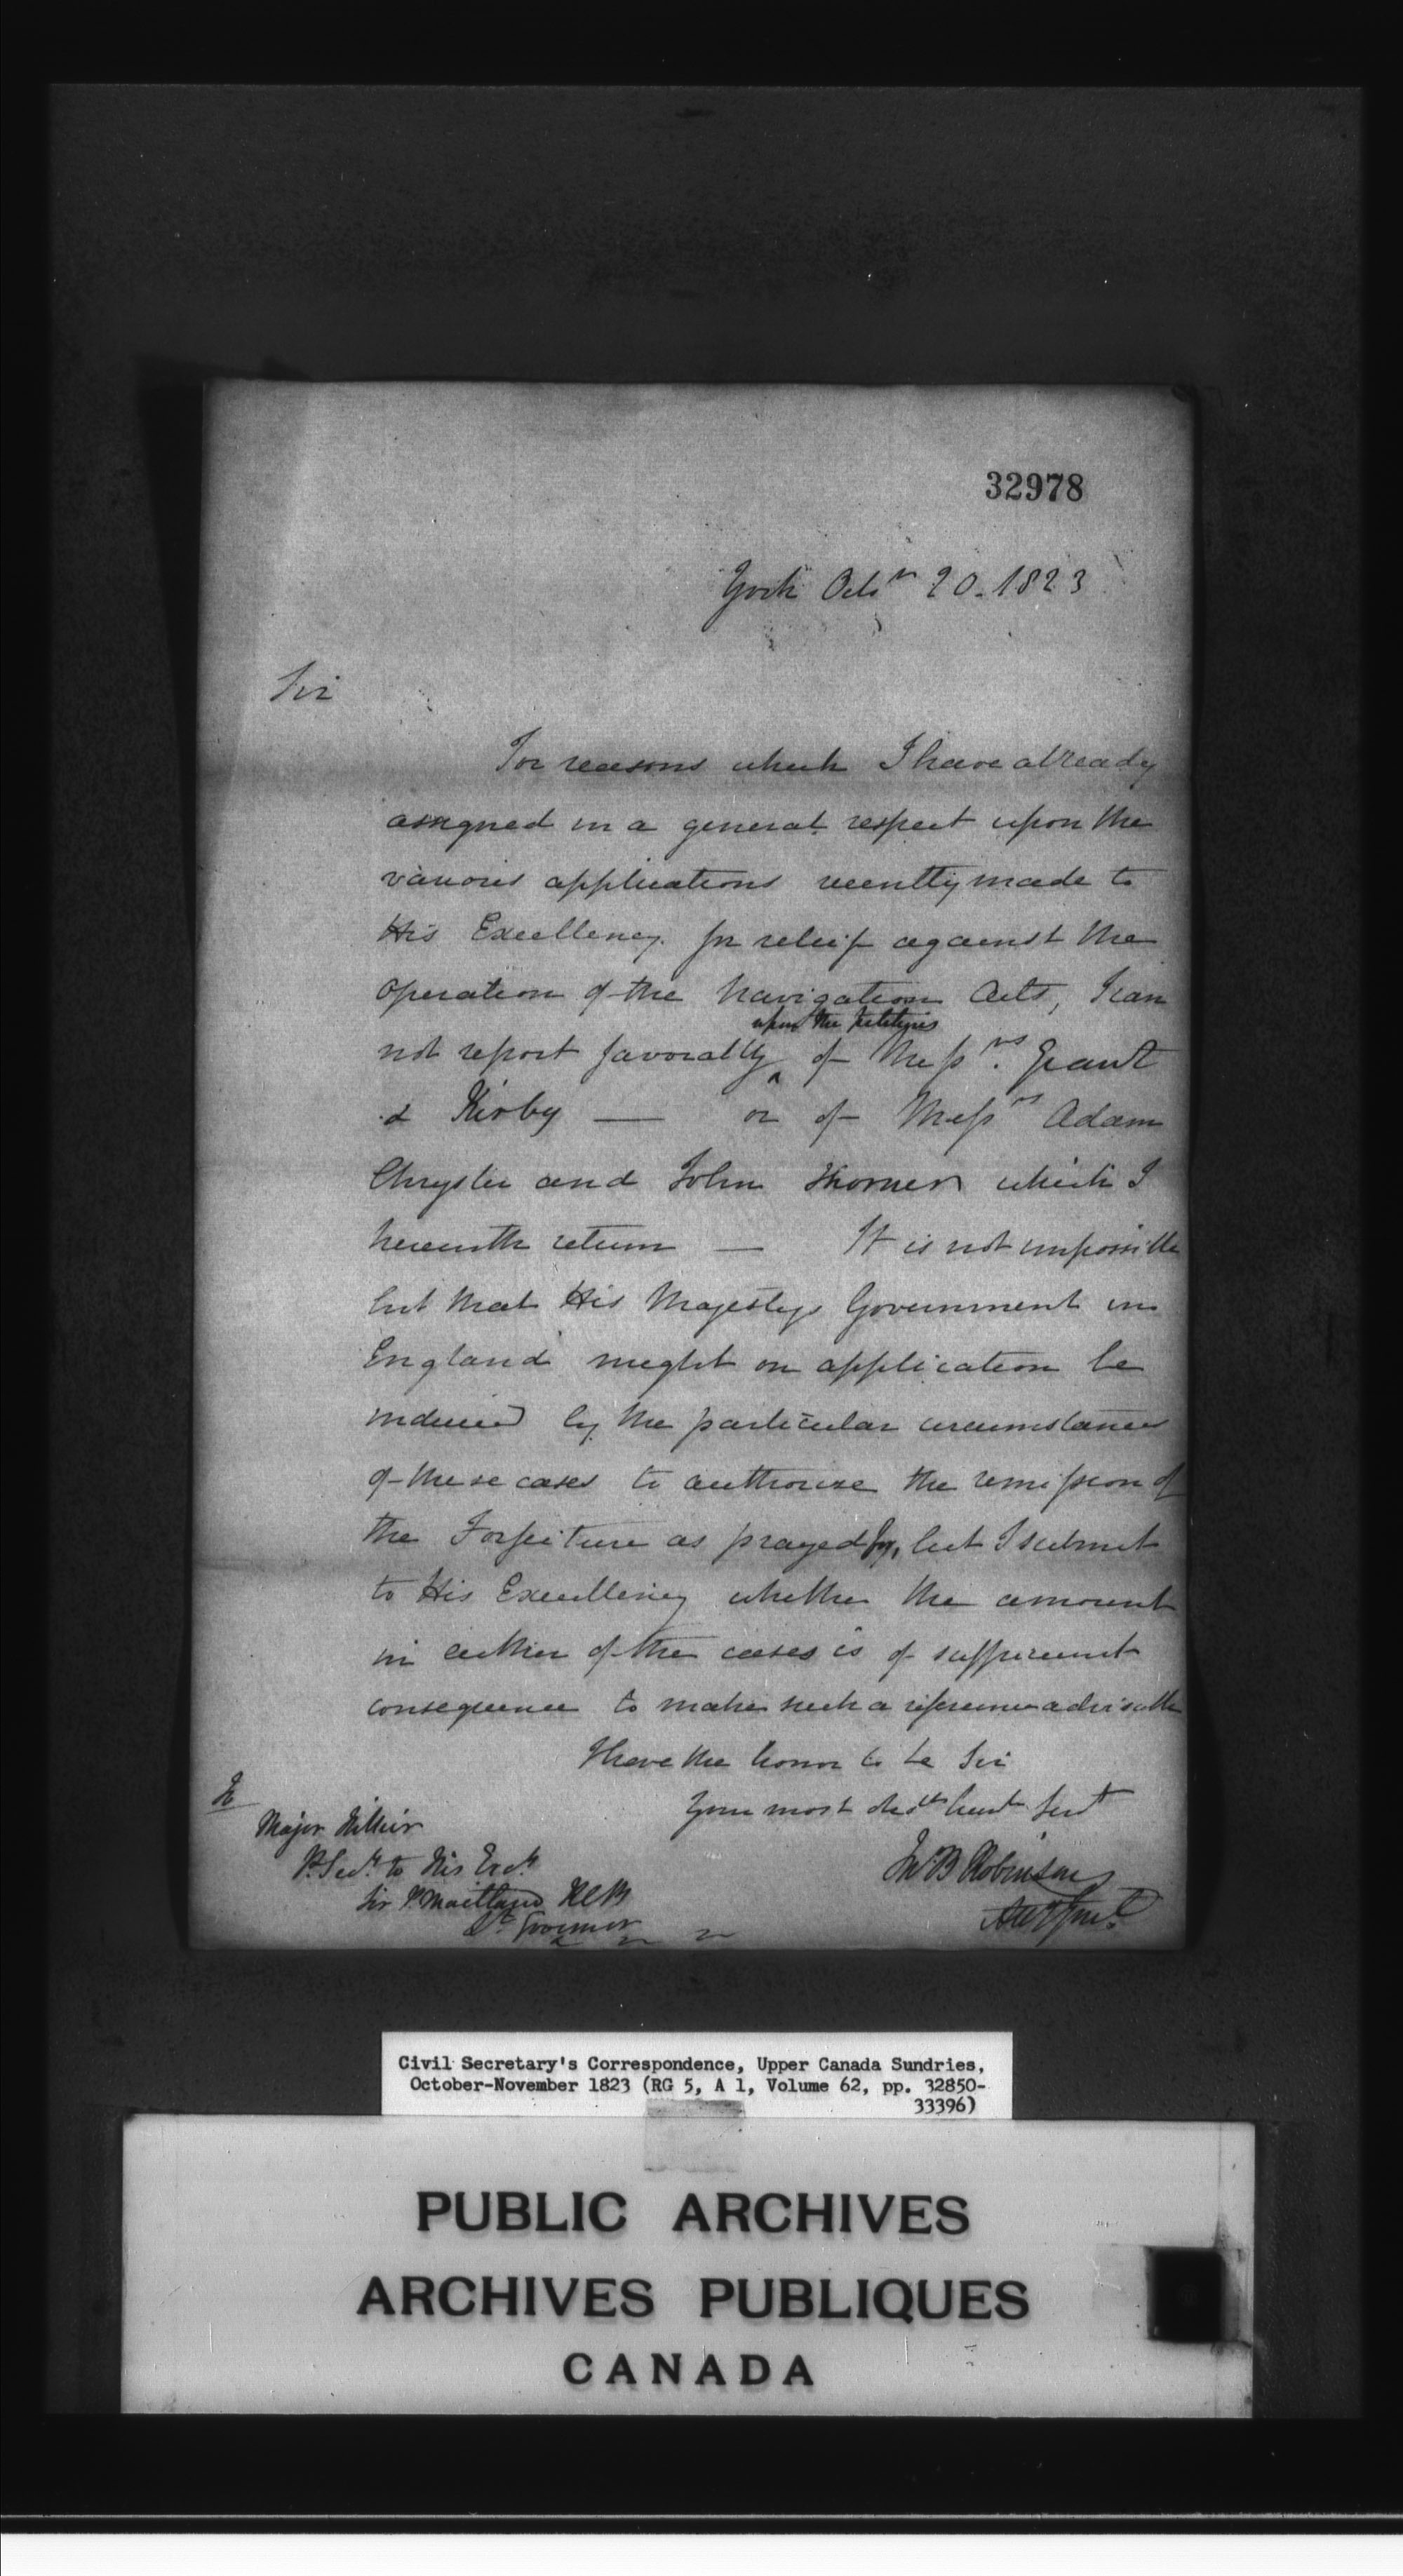 32978
York Octr 20. 1823
Sir
For reasons which I have already
assigned in a general respect upon the
various applications recently made to
His Excellency for relief against the
operation of the Navigation Acts, I can
not report favorably upon the petitions of Messrs. Grant
& Kirby — or of Messrs Adam
Chrysler and John Thorner which I
herewith return — It is not impossible
but that His Majestys Government in
England might on application be
induced by the particular circumstances
of these cases to authorize the remission of
the Forfeiture as prayed for, but I submit
to His Excellency whether the amount
in either of the cases is of sufficient
consequence to make such a reference advisable
I have the honor to be Sir
Your most obedt humt Servt
Jno B Robinson
Atty Genl
To
Major Hillier
P. Secy to His Excy
Sir P. Maitland KCB
Lt Governor
Civil Secretary's Correspondence, Upper Canada Sundries,
October-November 1823 (RG 5, A 1, Volume 62, pp. 32850-
33396)
PUBLIC ARCHIVES
ARCHIVES PUBLIQUES
CANADA